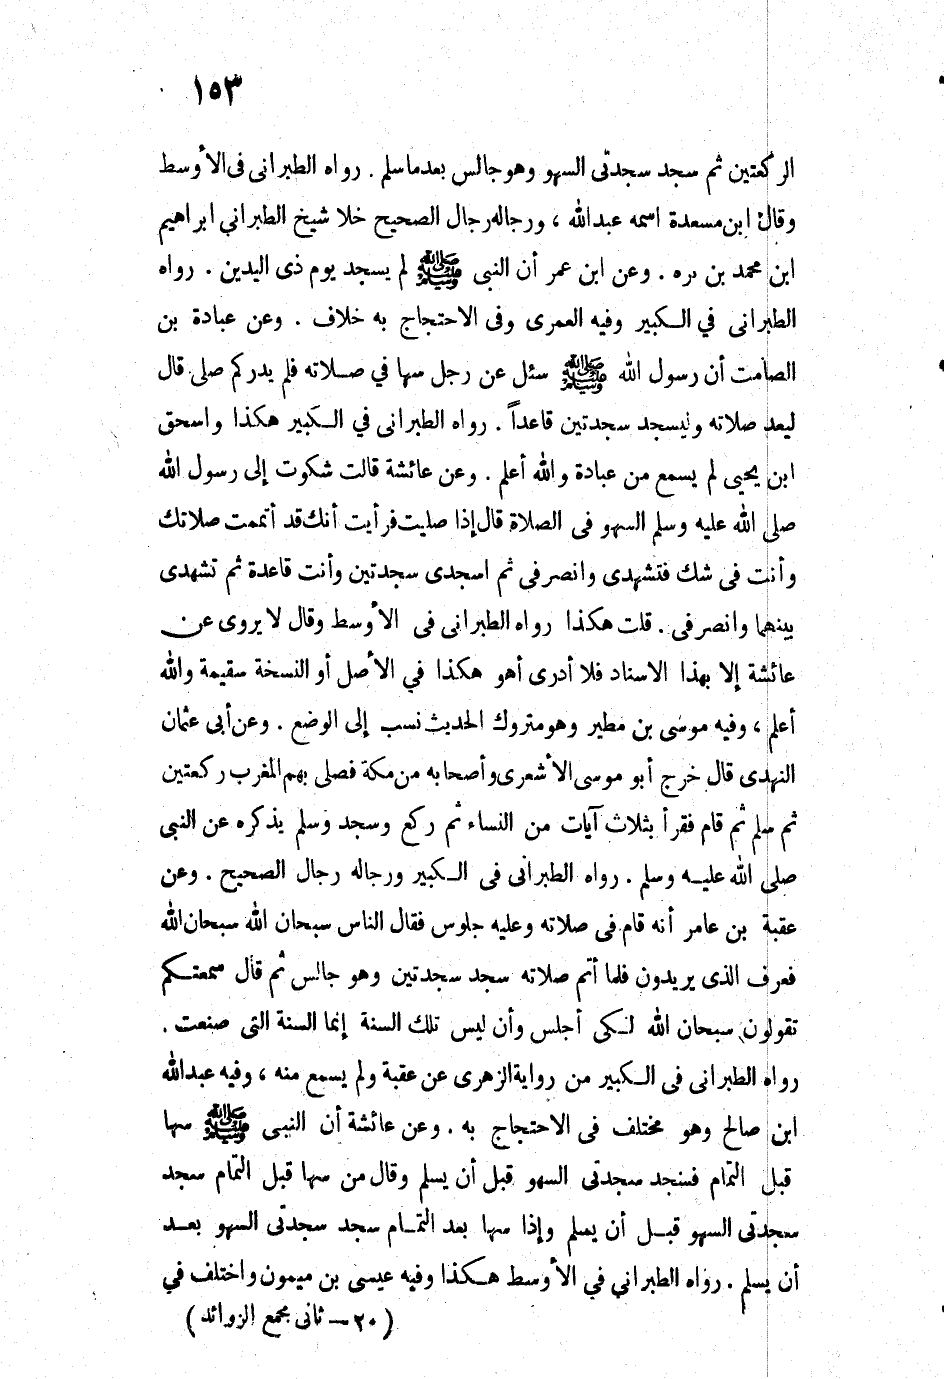 ١٥٣
الركعتين ثم سجد سجدتى السهو وهو جالس بعدما سلم . رواه الطبرانى فى الأوسط
وقال ابن مسعدة اسمه عبدالله ، ورجاله رجال الصحيح خلا شيخ الطبراني ابراهيم
ابن محمد بن بره . وعن ابن عمر أن النبى ﷺ لم يسجد يوم ذى اليدين . رواه
الطبرانى في الكبير وفيه العمرى وفى الاحتجاج به خلاف . وعن عبادة بن
الصامت أن رسول الله ﷺ سئل عن رجل سها في صلاته فلم يدركم صلى قال
ليعد صلاته وليسجد سجدتين قاعداً . رواه الطبرانى في الكبير هكذا واسحق
ابن يحيى لم يسمع من عبادة والله أعلم . وعن عائشة قالت شكوت إلى رسول الله
صلى الله عليه وسلم السهو فى الصلاة قال إذا صليت فرأيت أنك قد أتممت صلاتك
وأنت فى شك فتشهدى وانصرفى ثم اسجدى سجدتين وأنت قاعدة ثم تشهدى
بينهما وانصرفى . قلت هكذا رواه الطبرانى فى الأوسط وقال لا يروى عن
عائشة إلا بهذا الاسناد فلا أدرى أهو هكذا في الأصل أو النسخة سقيمة والله
أعلم ، وفيه موسى بن مطير وهو متروك الحديث نسب إلى الوضع . وعن أبى عثمان
النهدى قال خرج أبو موسى الأشعرى وأصحابه من مكة فصلى بهم المغرب ركعتين
ثم سلم ثم قام فقرأ بثلاث آيات من النساء ثم ركع وسجد وسلم يذكره عن النبى
صلى الله عليه وسلم . رواه الطبرانى فى الكبير ورجاله رجال الصحيح . وعن
عقبة بن عامر أنه قام فى صلاته وعليه جلوس فقال الناس سبحان الله سبحان الله
فعرف الذى يريدون فلما أتم صلاته سجد سجدتين وهو جالس ثم قال سمعتكم
تقولون سبحان الله لكى أجلس وأن ليس تلك السنة إنما السنة التى صنعت .
رواه الطبرانى فى الكبير من رواية الزهرى عن عقبة ولم يسمع منه ، وفيه عبدالله
ابن صالح وهو مختلف فى الاحتجاج به . وعن عائشة أن النبى ﷺ سها
قبل التمام فسجد سجدتى السهو قبل أن يسلم وقال من سها قبل التمام سجد
سجدتى السهو قبل أن يسلم وإذا سها بعد التمام سجد سجدتى السهو بعد
أن يسلم . رواه الطبراني في الأوسط هكذا وفيه عيسى بن ميمون واختلف في
( ٢٠ — ثانى مجمع الزوائد )